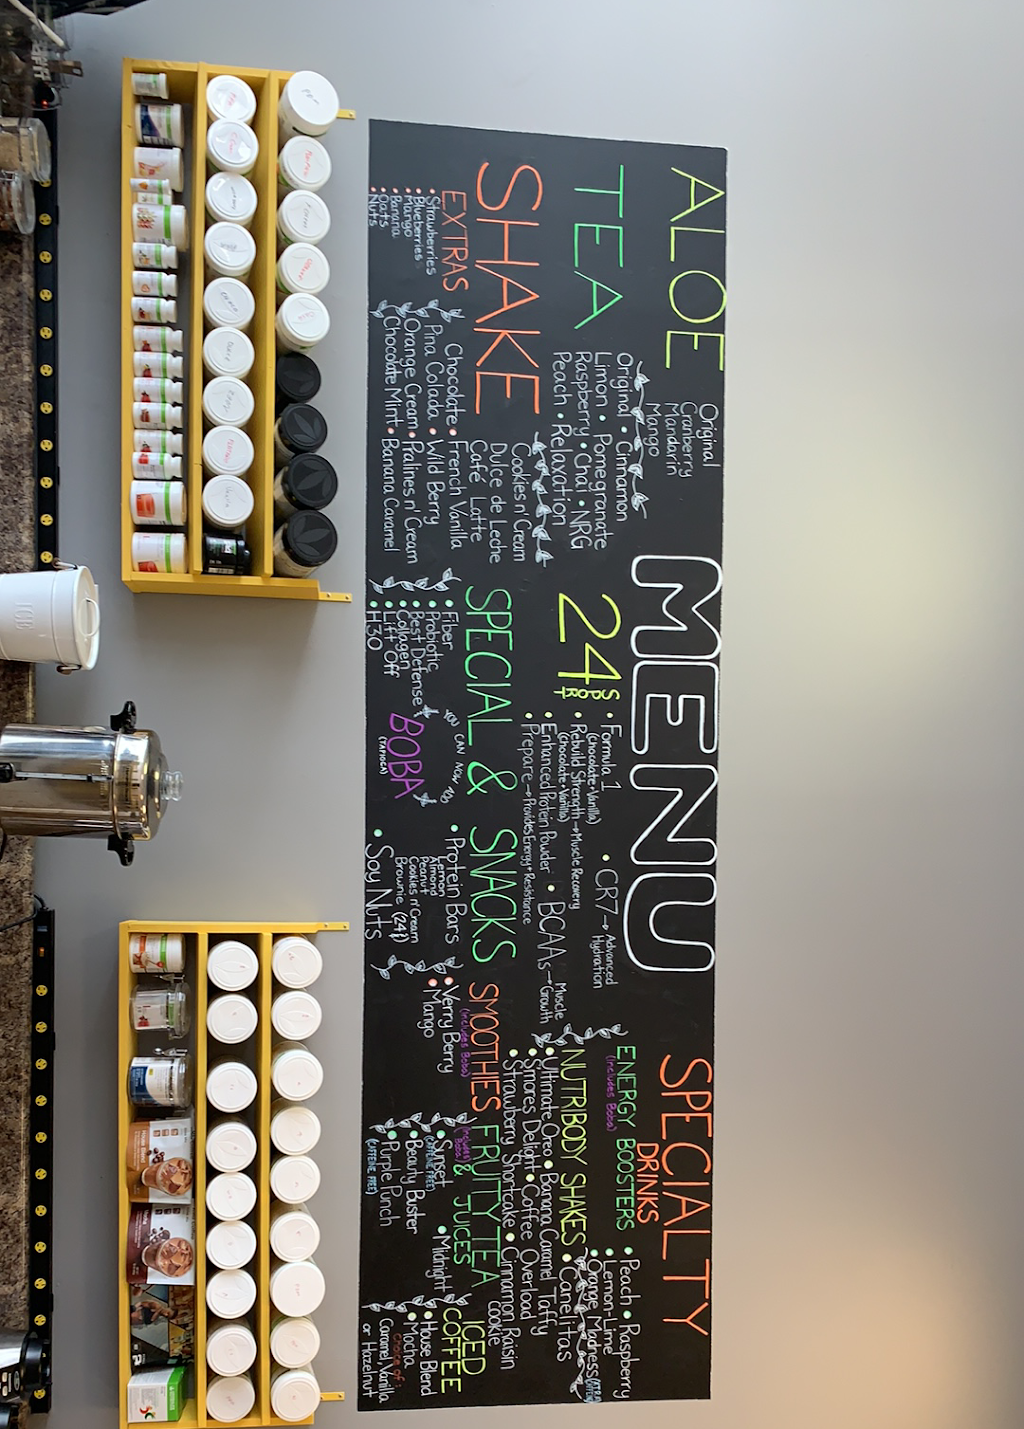 MENU
ALOE
Original
Cranberry
Mandarin
Mango
TEA
Original • Cinnamon
Limon • Pomegranate
Raspberry • Chai • NRG
Peach • Relaxation
SHAKE
Cookies n' Cream
Dulce de Leche
Café Latte
Chocolate • French Vanilla
Pina Colada • Wild Berry
Orange Cream • Pralines n' Cream
Chocolate Mint • Banana Caramel
EXTRAS
• Strawberries
• Blueberries
• Mango
• Banana
• Oats
• Nuts
24
SPORT
• Formula 1
(chocolate • Vanilla)
• Rebuild Strength → Muscle Recovery
(chocolate • Vanilla)
• Enhanced Protein Powder
• Prepare → Provides Energy + Resistance
• CR7 → Advanced Hydration
• BCAAs → Muscle Growth
SPECIAL & SNACKS
• Fiber
• Probiotic
• Best Defense
• Collagen
• Lift Off
• H30
YOU CAN NOW
BOBA
(TAPIOCA)
• Protein Bars
Lemon
Almond
Peanut
Cookies n' Cream
Brownie (24g)
• Soy Nuts
SPECIALTY
DRINKS
ENERGY BOOSTERS
(includes Boba)
• Peach • Raspberry
• Lemon-Lime
• Orange Madness
NUTRIBODY SHAKES
• Canelitas
• Ultimate Oreo • Banana Caramel Taffy
• Smores Delight • Coffee Overload
• Strawberry Shortcake • Cinnamon Raisin
Cookie
SMOOTHIES
(includes Boba)
• Verry Berry
• Mango
FRUITY TEA
& JUICES
(includes Boba)
• Sunset
(CAFFEINE FREE)
• Beauty Buster
• Purple Punch
(CAFFEINE FREE)
• Midnight
ICED
COFFEE
• House Blend
• Mocha
choice of:
Caramel, Vanilla
or Hazelnut
ICE